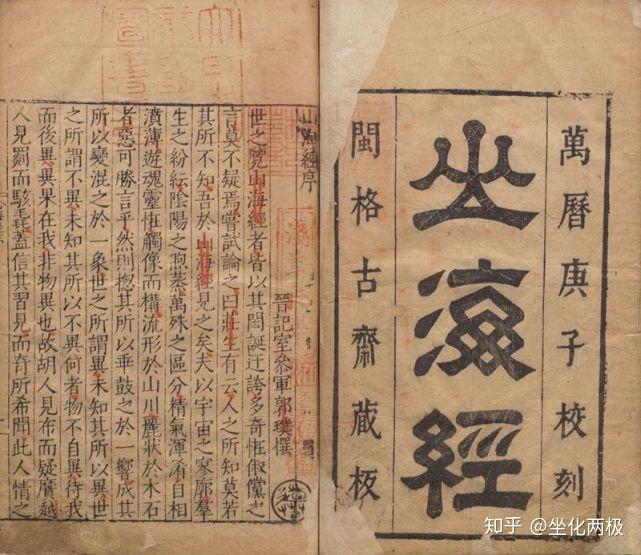 萬曆庚子校刻
山海經
閩格古齋藏板
山海經序
晉記室參軍郭璞撰
世之覽山海經者皆以其閎誕迂誇多奇怪俶儻之
言莫不疑焉嘗試論之曰莊生有云人之所知莫若
其所不知吾於山海經見之矣夫以宇宙之寥廓羣
生之紛紜陰陽之煦蒸萬殊之區分精氣渾淆自相
濆薄遊魂靈怪觸像而構流形於山川麗狀於木石
者惡可勝言乎然則摠其所以乖鼓之於一響成其
所以變混之於一象世之所謂異未知其所以異世
之所謂不異未知其所以不異何者物不自異待我
而後異異果在我非物異也故胡人見布而疑黂越
人見罽而駭毳蓋信其習見而奇所希聞此人情之
知乎 @坐化两极